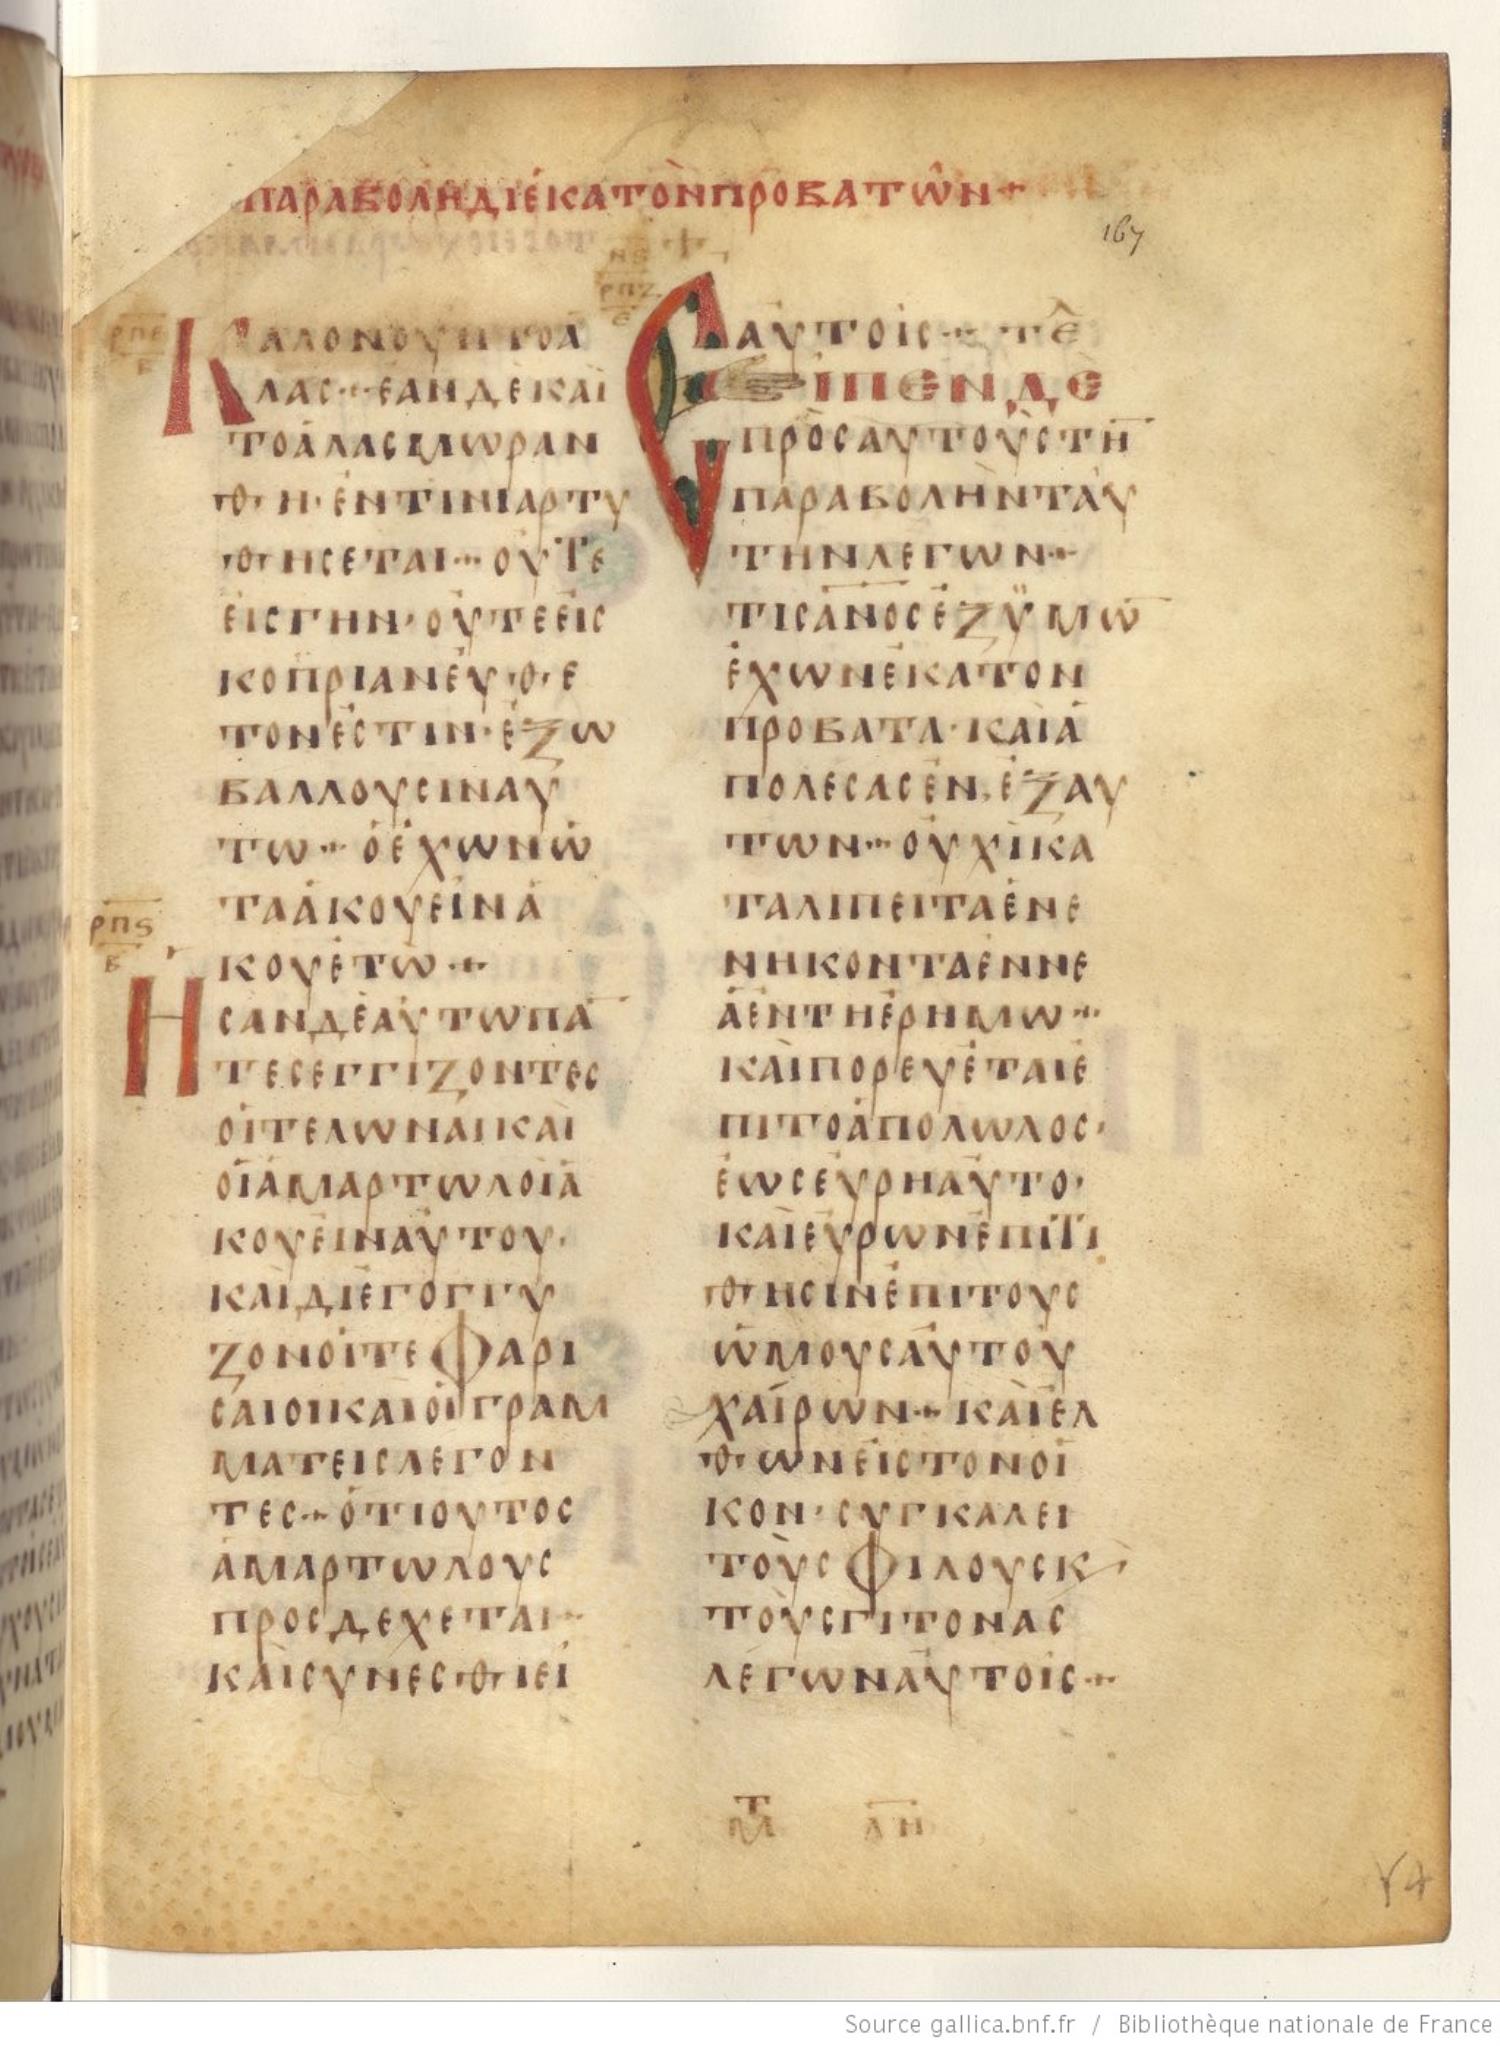 ΠΑΡΑΒΟΛΗ ΔΙ ἑΚΑΤῸΝ ΠΡΟΒΑΤΩ͂Ν+
167
ΡΠΕ
Β
ΚΑΛΟΝΟΥΝΤΟΑ
ΛΑΣ·ἐΑΝΔΕΚΑῚ
ΤΟἅΛΑΣΜΩΡΑΝ
ΘΗ·ἐΝΤΙΝΙΑΡΤΥ
ΘΗΣΕΤΑΙ··ΟΥΤΕ
ἐΙΣΓΗΝ·ΟΥΤΕἐΙΣ
ΚΟΠΡΙΑΝἐΥΘΕ
ΤΟΝἐΣΤΙΝ·ἐΞΩ
ΒΑΛΛΟΥΣΙΝΑΥ
ΤΩ··ὁἐΧΩΝΩ
ΤΑἀΚΟΥΕΙΝἀ
ΡΠϚ
Β
ΚΟΥΕΤΩ·+
ΗΣΑΝΔΕΑΥΤΩΠΑ̅
ΤΕΣΕΓΓΙΖΟΝΤΕΣ
ΟἱΤΕΛΩΝΑΙΚΑΙ
ΟἱἁΜΑΡΤΩΛΟΙἀ
ΚΟΥΕΙΝΑΥΤΟΥ·
ΚΑΙΔΙΕΓΟΓΓΥ
ΖΟΝΟἱΤΕΦΑΡΙ
ΣΑΙΟΙΚΑΙΟἱΓΡΑΜ
ΜΑΤΕΙΣΛΕΓΟΝ
ΤΕΣ·+ὁΤΙΟΥΤΟΣ
ἁΜΑΡΤΩΛΟΥΣ
ΠΡΟΣΔΕΧΕΤΑΙ··
ΚΑΙΣΥΝΕΣΘΙΕΙ
ΝϚ
ΡΠΖ
Ε
ΑΥΤΟΙΣ·+ΤΕ
ΕἸΠΕΝΔῈ
ΠΡῸΣΑΥΤΟῪΣΤΗ̅
ΠΑΡΑΒΟΛῊΝΤΑΥ
ΤΗΝΛΕΓΩΝ·+
ΤΙΣΑ̅Ν̅Ο̅Σ̅ἐΞΫΜΩ̅
ἐΧΩΝἑΚΑΤΟΝ
ΠΡΟΒΑΤΑ·ΚΑΙἀ
ΠΟΛΕΣΑΣἑΝ,ἐΞΑΥ
ΤΩΝ··ΟΥΧΙΚΑ
ΤΑΛΙΠΕΙΤΑἐΝΕ
ΝΗΚΟΝΤΑἐΝΝΕ
ἀΕΝΤΗἐΡΗΜΩ··
ΚΑΙΠΟΡΕΥΕΤΑΙἐ
ΠΙΤΟἀΠΟΛΩΛΟΣ·
ἑΩΣΕΥΡΗΑΥΤΟ·
ΚΑΙΕΥΡΩΝἐΠΙΤΙ
ΘΗΣΙΝἐΠΙΤΟΥΣ
ΩΜΟΥΣΑΥΤΟΥ
ΧΑΙΡΩΝ·+ΚΑΙΕΛ
ΘΩΝΕΙΣΤΟΝΟΙ
ΚΟΝ·ΣΥΓΚΑΛΕΙ
ΤΟῪΣΦΙΛΟΥΣΚ,
ΤΟῪΣΓΙΤΟΝΑΣ
ΛΕΓΩΝΑΥΤΟΙΣ·+
Source gallica.bnf.fr / Bibliothèque nationale de France